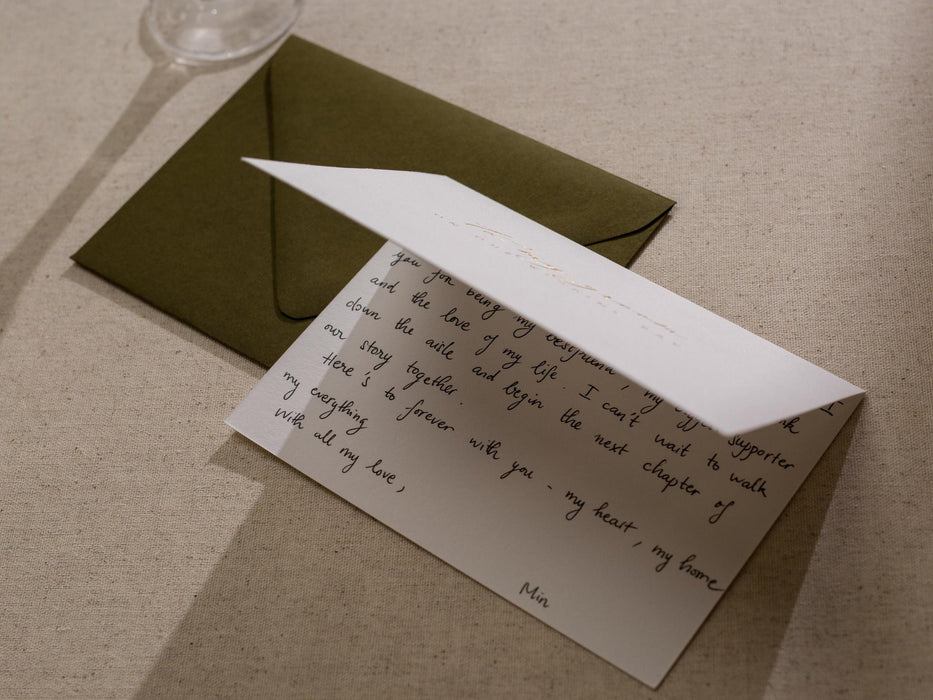 I
you for being my bestfriend, my biggest supporter
and the love of my life. I can't wait to walk
down the aisle and begin the next chapter of
our story together.
Here's to forever with you - my heart, my home
my everything
With all my love,
Min